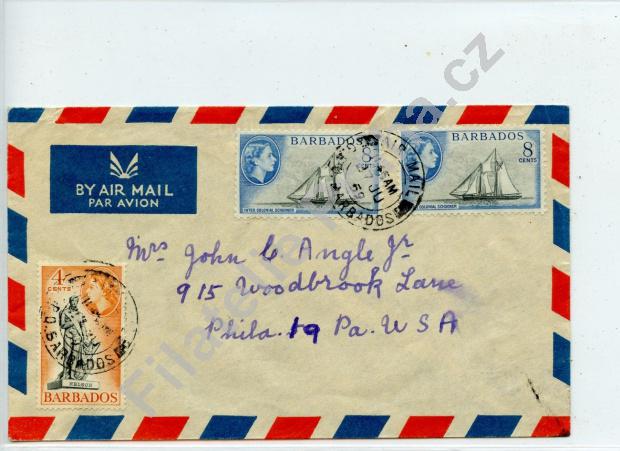 BARBADOS
INTER COLONIAL SCHOONER
BARBADOS
8
CENTS
COLONIAL SCHOONER
AIR MAIL
BARBADOS
BY AIR MAIL
PAR AVION
Mrs John C. Angle Jr.
915 Woodbrook Lane
Phila. 19 Pa. USA
4
CENTS
G.P.O. BARBADOS
NELSON
BARBADOS